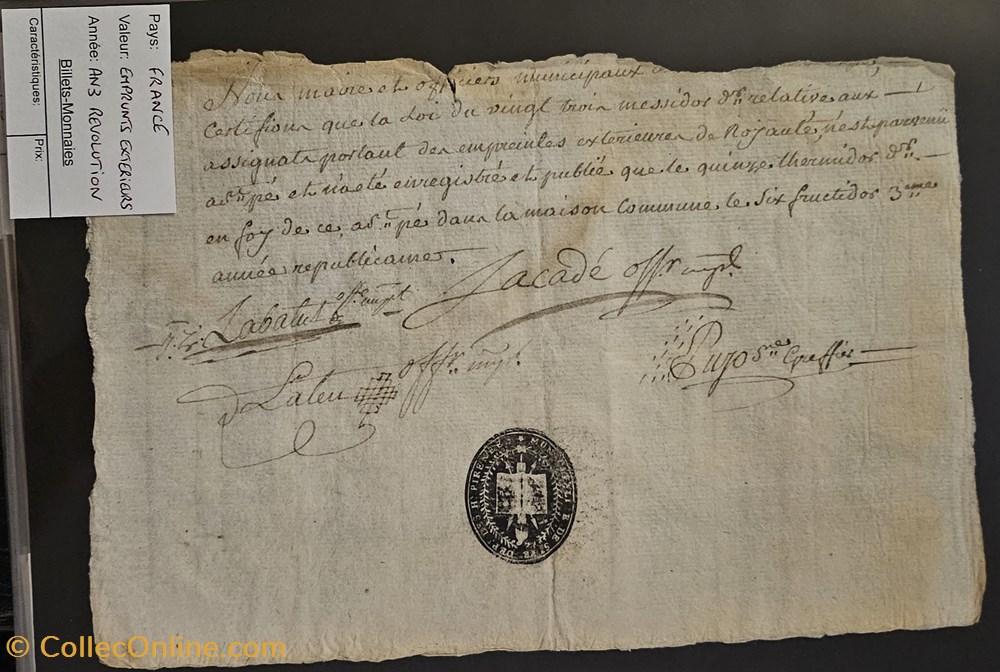 Pays: FRANCE
Valeur: EMPRUNTS EXTERIEURS
Année: AN3 REVOLUTION
Billets-Monnaies
Caractéristiques:
Prix:
Nous maire et officiers municipaux
Certifions que la Loi du vingt trois messidor d.er relative aux
assignats portant des empreintes extérieures de Royauté, n'est parvenu
et n'a eté enregistré et publié que le quinze thermidor d.er
en foy de ce, dans la maison commune le Six fructidor 3.eme
année republicaine.
Labatut off. mpl
Jacadé offr mpl.
D Lateu offr. mpl.
Pujo S.re Greffier
MUNICIPALI
DEP. DES H. PIRENEES
© CollecOnline.com